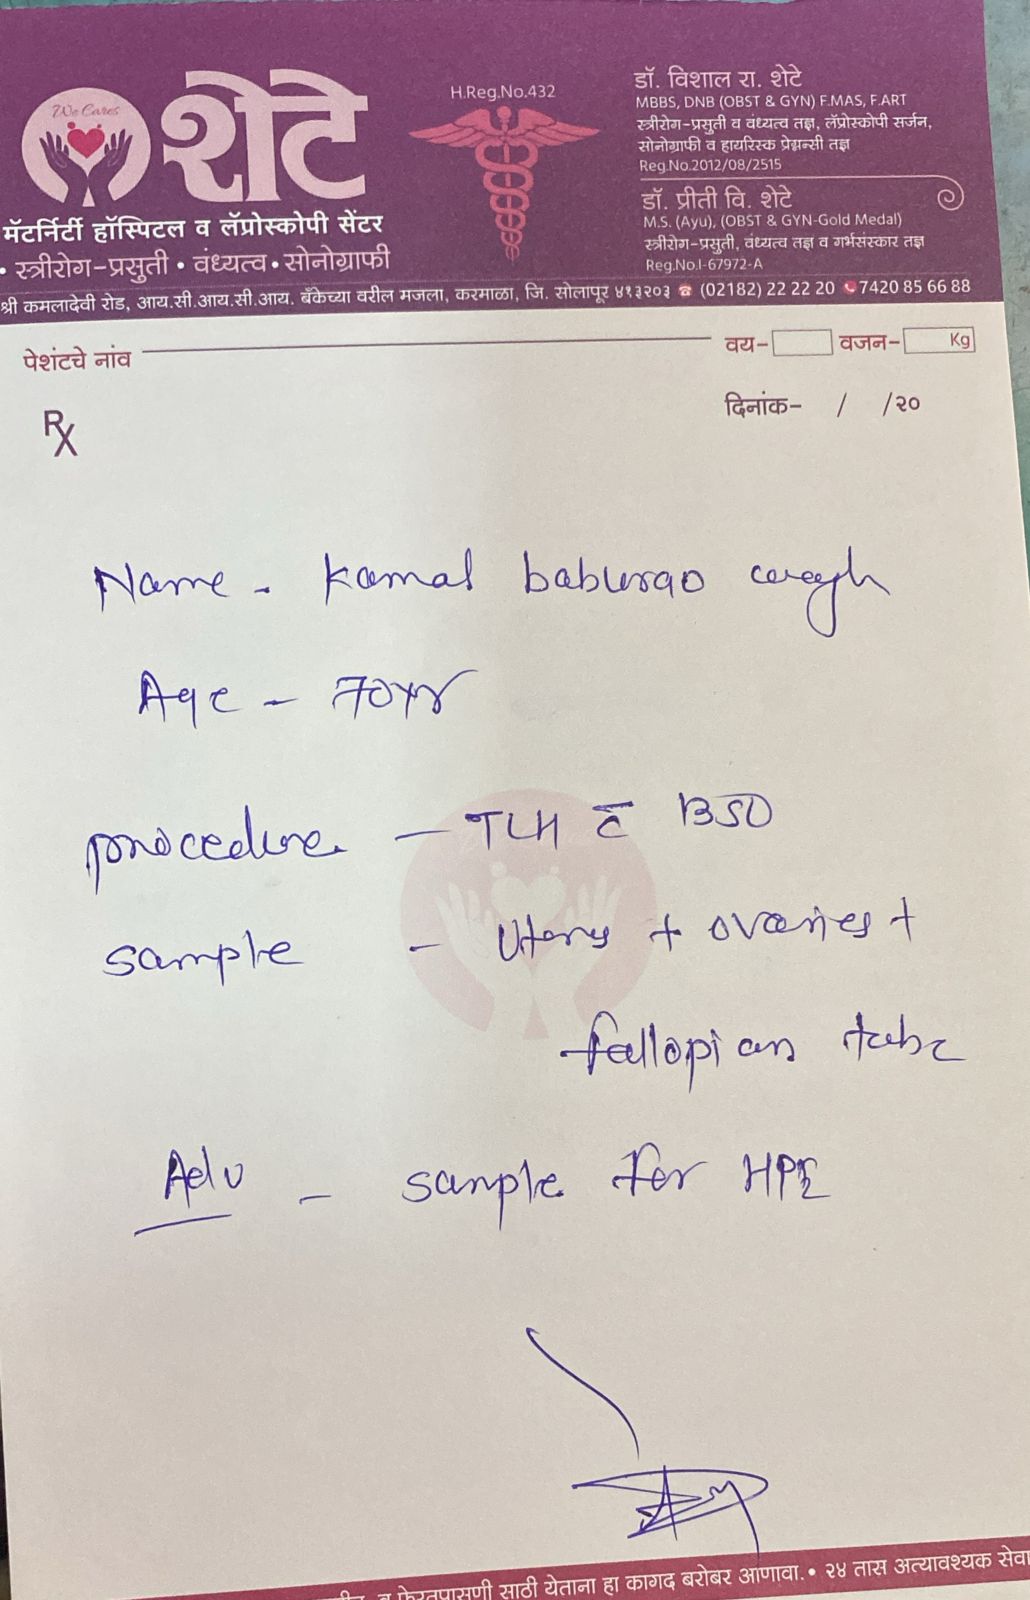 We Cares
शेटे
मॅटर्निटी हॉस्पिटल व लॅप्रोस्कोपी सेंटर
• स्त्रीरोग-प्रसुती • वंध्यत्व • सोनोग्राफी
H.Reg.No.432
डॉ. विशाल रा. शेटे
MBBS, DNB (OBST & GYN) F.MAS, F.ART
स्त्रीरोग-प्रसुती व वंध्यत्व तज्ञ, लॅप्रोस्कोपी सर्जन,
सोनोग्राफी व हायरिस्क प्रेग्नन्सी तज्ञ
Reg.No.2012/08/2515
डॉ. प्रीती वि. शेटे
M.S. (Ayu), (OBST & GYN-Gold Medal)
स्त्रीरोग-प्रसुती, वंध्यत्व तज्ञ व गर्भसंस्कार तज्ञ
Reg.No.I-67972-A
श्री कमलादेवी रोड, आय.सी.आय.सी.आय. बँकेच्या वरील मजला, करमाळा, जि. सोलापूर ४१३२०३ ☎ (02182) 22 22 20 7420 85 66 88
पेशंटचे नांव वय- वजन- Kg
दिनांक- / /२०
Rx
Name - Kamal baburao wagh
Age - 70yr
procedure - TLH c̄ BSO
sample - Uterus + ovaries +
fallopian tube
Adv - sample for HPE
व फेरतपासणी साठी येताना हा कागद बरोबर आणावा. • २४ तास अत्यावश्यक सेवा